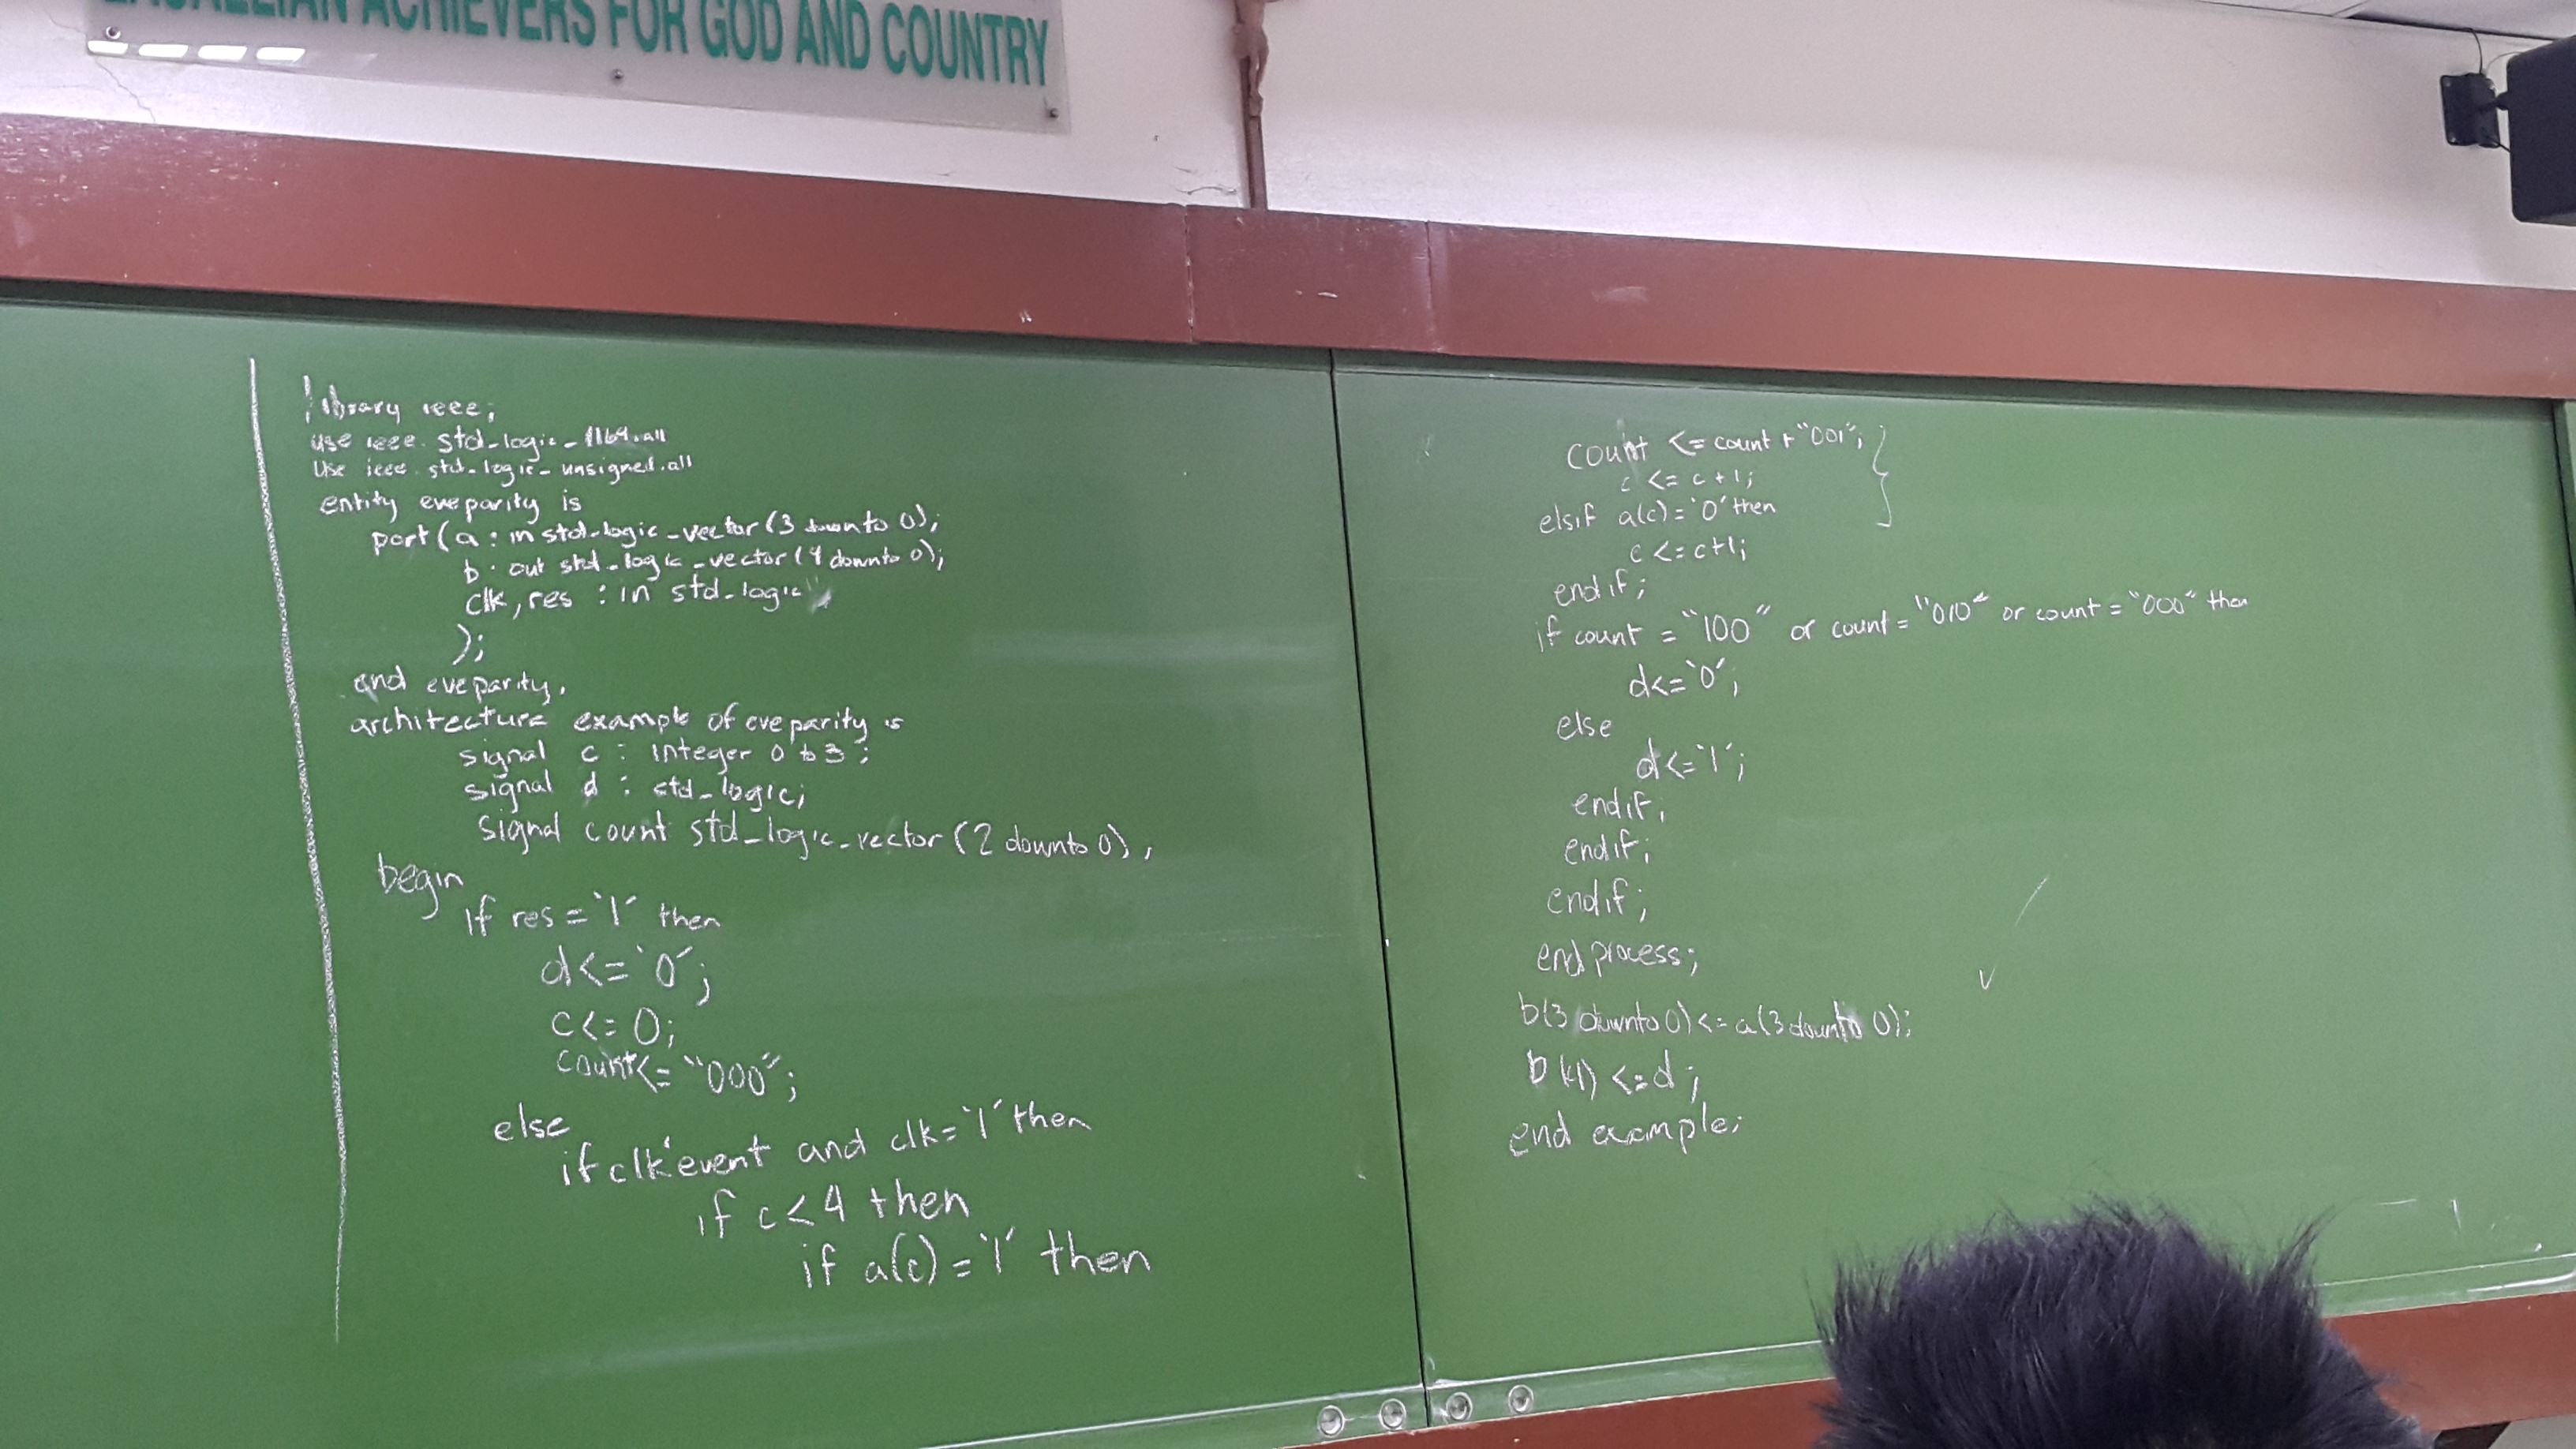 ACHIEVERS FOR GOD AND COUNTRY
library ieee;
use ieee. std_logic_1164.all
Use ieee. std_logic_unsigned.all
entity eveparity is
port (a : in std_logic_vector (3 downto 0);
b : out std_logic_vector (4 downto 0);
clk, res : in std_logic
);
end eveparity;
architecture example of eveparity is
signal c : integer 0 to 3;
signal d : std_logic;
signal count std_logic_vector (2 downto 0);
begin
if res = '1' then
d <= '0';
c <= 0;
count <= "000";
else
if clk'event and clk = '1' then
if c < 4 then
if a(c) = '1' then
count <= count + "001";
c <= c + 1;
elsif a(c) = '0' then
c <= c+1;
end if;
if count = "100" or count = "010" or count = "000" then
d <= '0';
else
d <= '1';
end if;
end if;
end if;
end process;
b(3 downto 0) <= a(3 downto 0);
b(4) <= d;
end example;